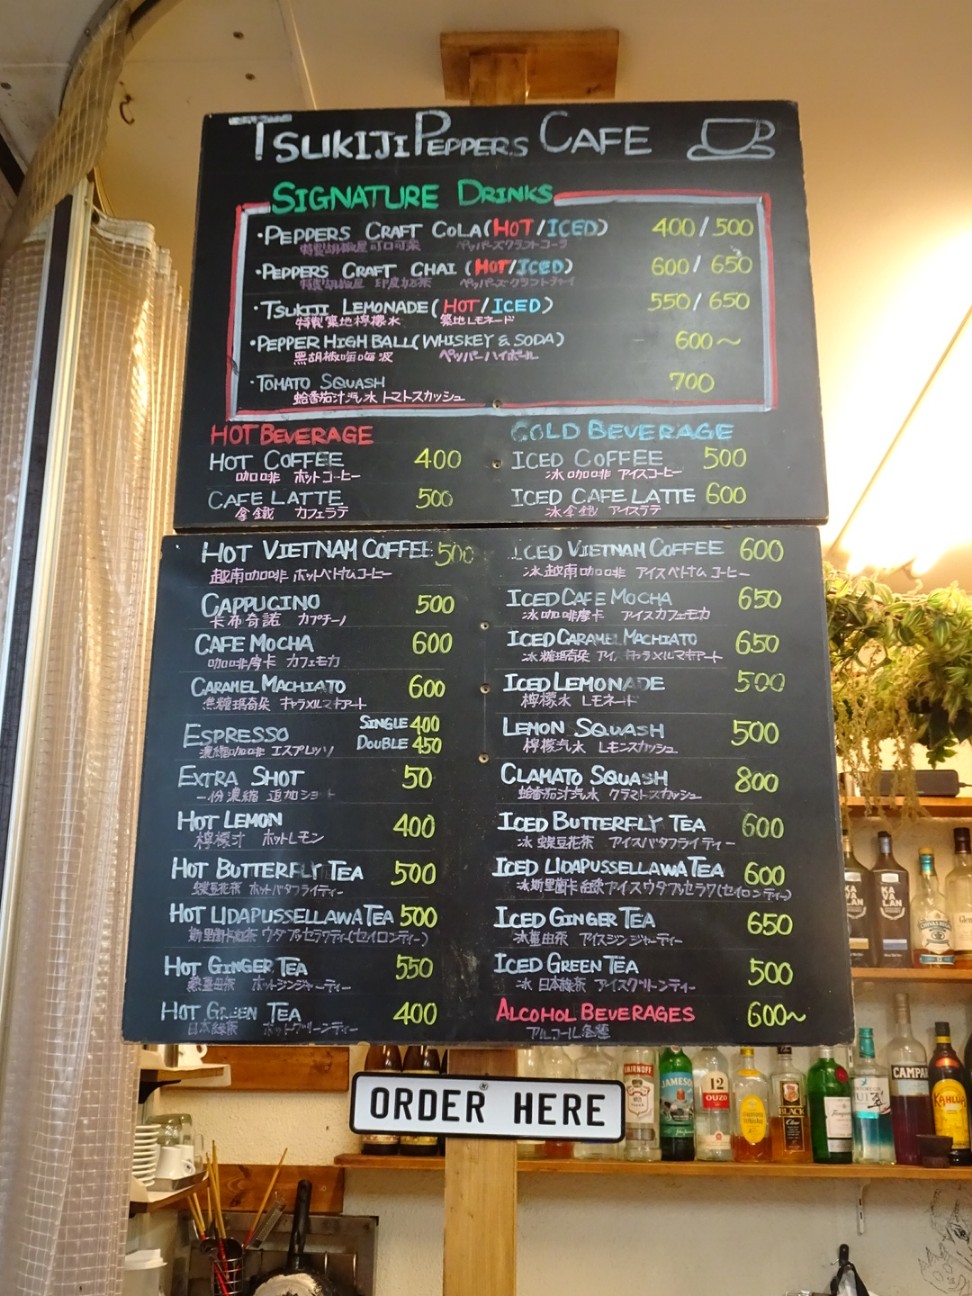 TSUKIJI PEPPERS CAFE
SIGNATURE DRINKS
・PEPPERS CRAFT COLA (HOT/ICED) 400/500
ペッパーズクラフトコーラ
・PEPPERS CRAFT CHAI (HOT/ICED) 600/650
ペッパーズクラフトチャイ
・TSUKIJI LEMONADE (HOT/ICED) 550/650
特製築地檸檬水 築地レモネード
・PEPPER HIGH BALL (WHISKEY & SODA) 600～
黒胡椒 ペッパーハイボール
・TOMATO SQUASH 700
蛤番茄汁汽水 トマトスカッシュ
HOT BEVERAGE
HOT COFFEE 400
咖啡 ホットコーヒー
CAFE LATTE 500
拿鐵 カフェラテ
HOT VIETNAM COFFEE 500
越南咖啡 ホットベトナムコーヒー
CAPPUCINO 500
卡布奇諾 カプチーノ
CAFE MOCHA 600
咖啡摩卡 カフェモカ
CARAMEL MACHIATO 600
焦糖瑪奇朵 キャラメルマキアート
ESPRESSO SINGLE 400
DOUBLE 450
濃縮咖啡 エスプレッソ
EXTRA SHOT 50
一份濃縮 追加ショット
HOT LEMON 400
檸檬汁 ホットレモン
HOT BUTTERFLY TEA 500
蝶豆花茶 ホットバタフライティー
HOT UDAPUSSELLAWA TEA 500
斯里蘭卡紅茶 ウダプッセラワティー(セイロンティー)
HOT GINGER TEA 550
ホットジンジャーティー
HOT GREEN TEA 400
日本綠茶 ホットグリーンティー
COLD BEVERAGE
ICED COFFEE 500
冰咖啡 アイスコーヒー
ICED CAFE LATTE 600
冰拿鐵 アイスラテ
ICED VIETNAM COFFEE 600
冰越南咖啡 アイスベトナムコーヒー
ICED CAFE MOCHA 650
冰咖啡摩卡 アイスカフェモカ
ICED CARAMEL MACHIATO 650
冰焦糖瑪奇朵 アイスキャラメルマキアート
ICED LEMONADE 500
檸檬水 レモネード
LEMON SQUASH 500
檸檬汽水 レモンスカッシュ
CLAMATO SQUASH 800
蛤番茄汁汽水 クラマトスカッシュ
ICED BUTTERFLY TEA 600
冰蝶豆花茶 アイスバタフライティー
ICED UDAPUSSELLAWA TEA 600
冰斯里蘭卡紅茶 アイスウダプッセラワ(セイロンティー)
ICED GINGER TEA 650
アイスジンジャーティー
ICED GREEN TEA 500
冰 日本綠茶 アイスグリーンティー
ALCOHOL BEVERAGES 600～
アルコール各種
ORDER HERE
KAVALAN
KAVALAN
SMIRNOFF
JAMESON
12
OUZO
BLACK
CAMPARI
KAHLUA